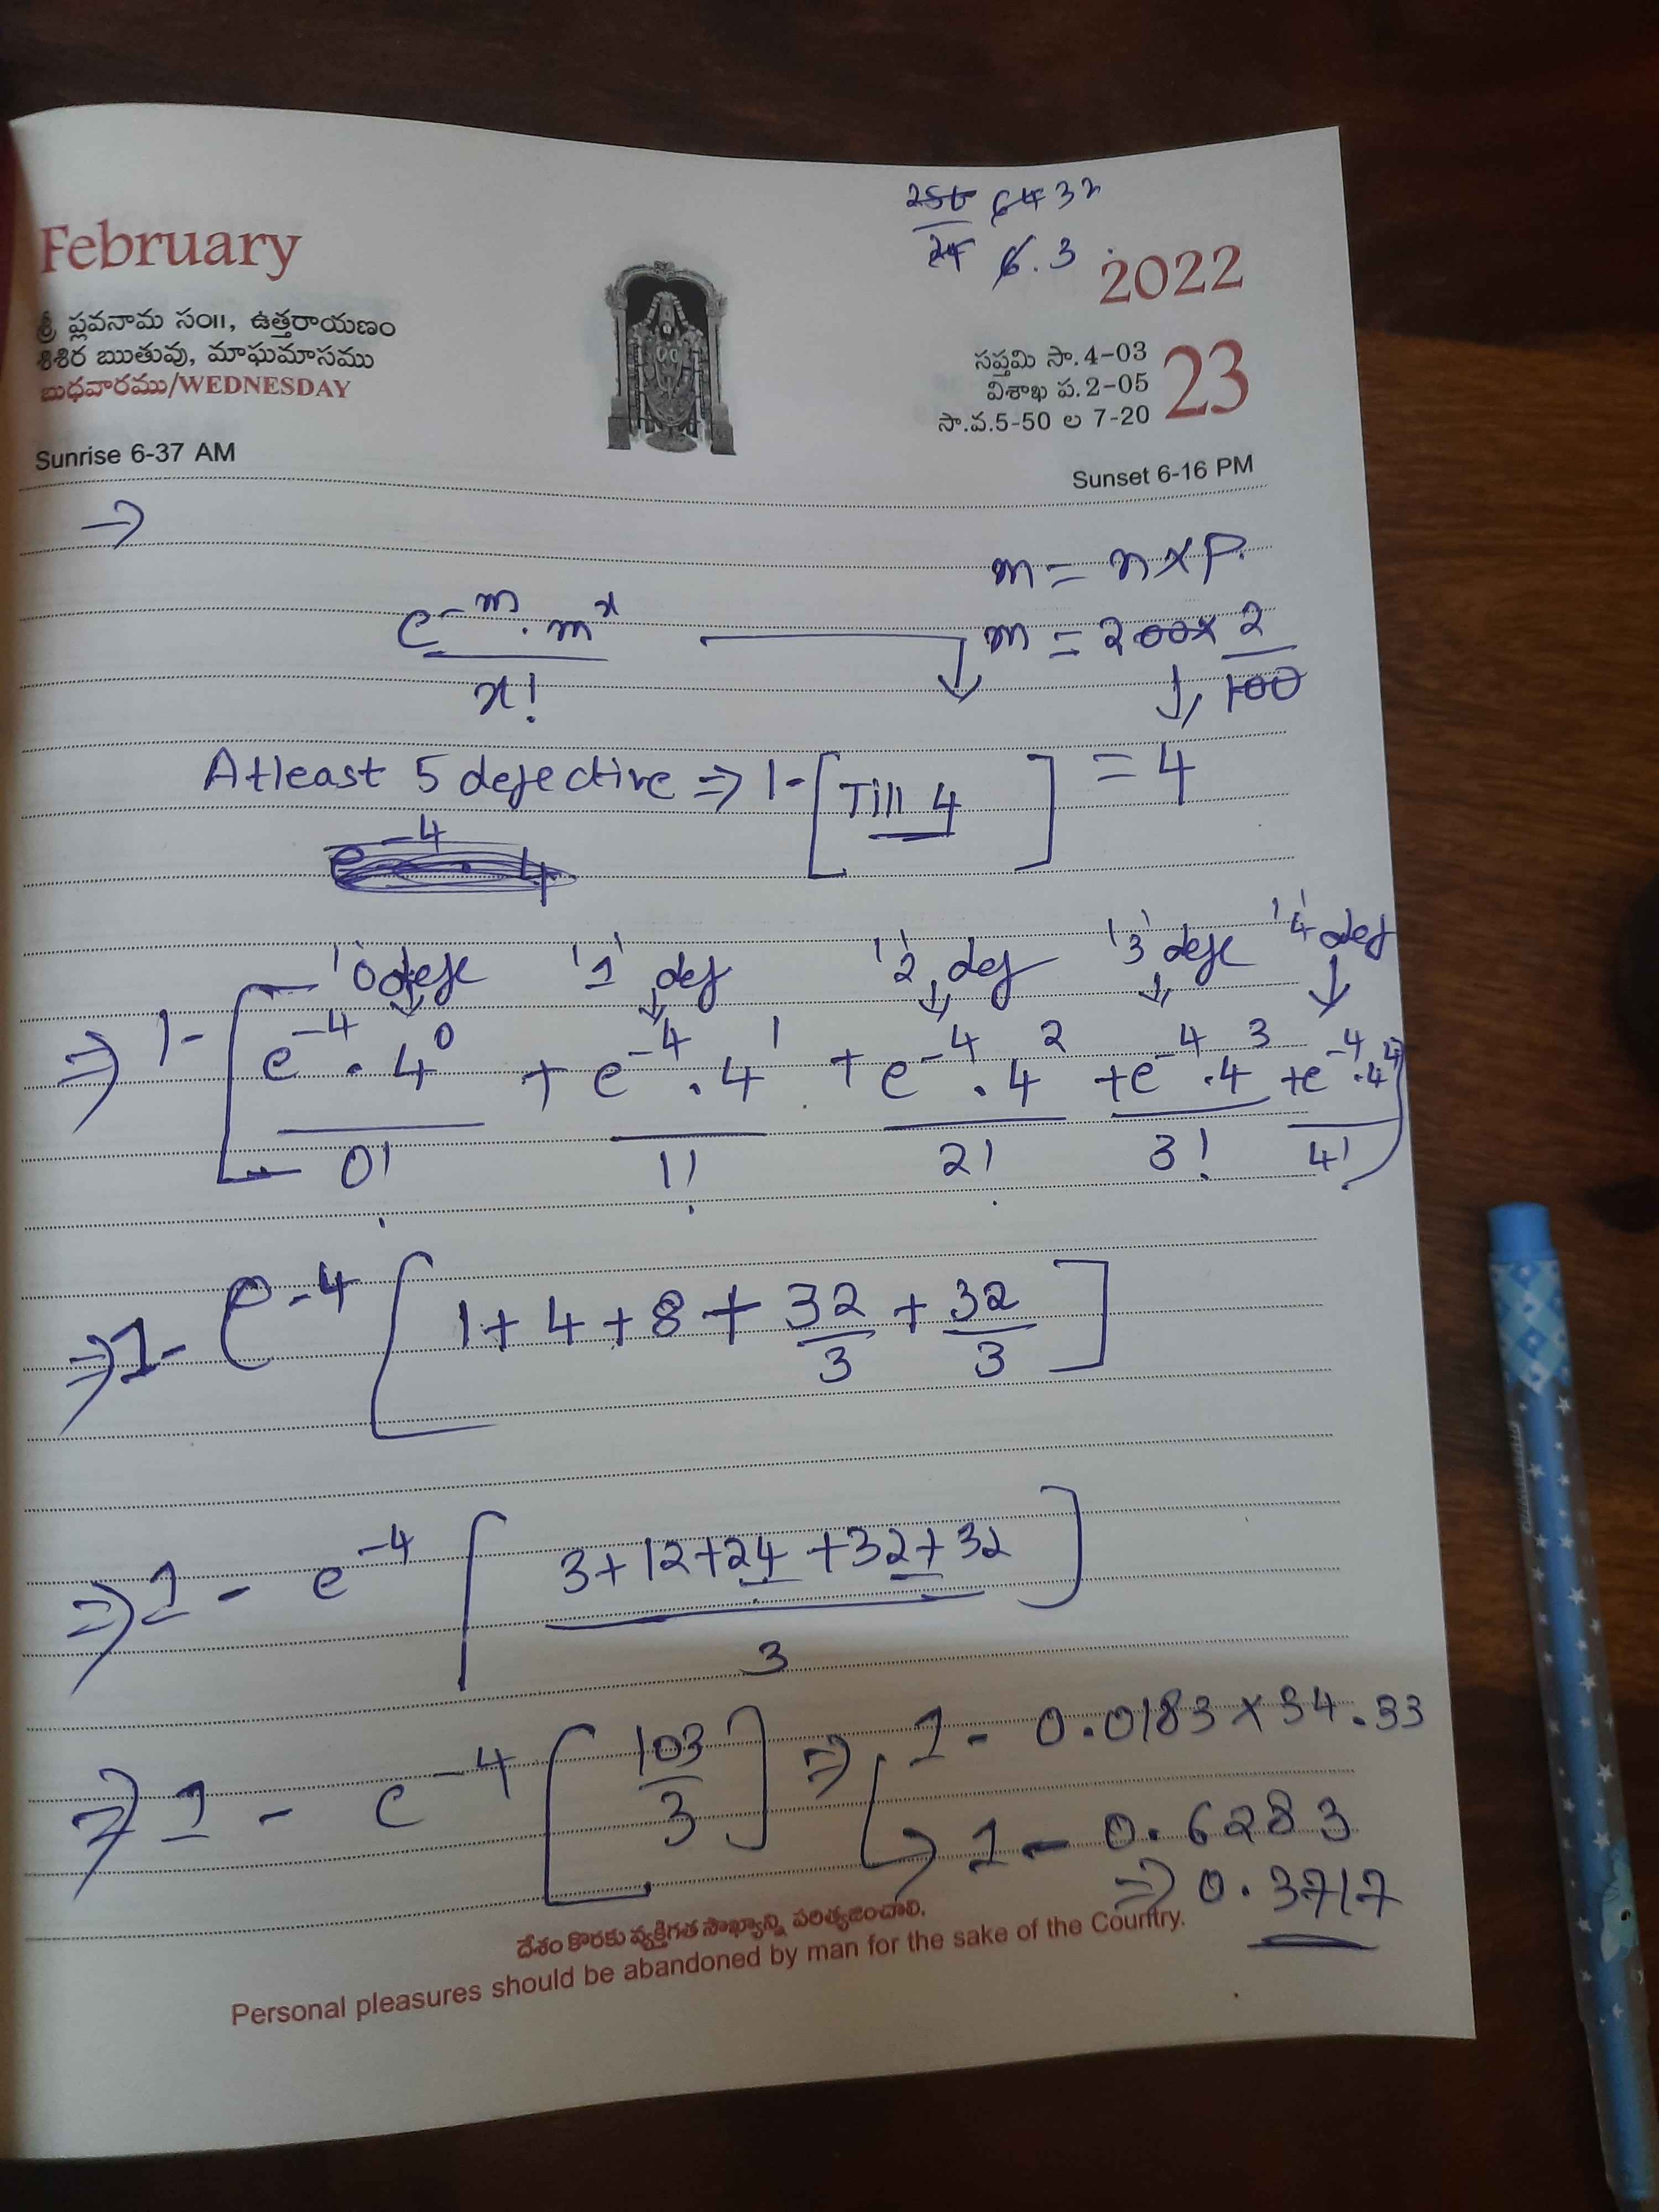 256 64 32
24 6. 3
February
2022
శ్రీ ప్లవనామ సం॥, ఉత్తరాయణం
శిశిర ఋతువు, మాఘమాసము
బుధవారము/WEDNESDAY
సప్తమి సా.4-03
విశాఖ ప.2-05
సా.వ.5-50 ల 7-20
23
Sunrise 6-37 AM
Sunset 6-16 PM
→
m = n x p.
e^-m . m^x
x!
m = 200 x 2
100
Atleast 5 defective ⇒ 1 - [Till 4] = 4
e^-4 . 4
'0' defe '1' def '2' def '3' defe '4' def
⇒ 1 - [e^-4 . 4^0 + e^-4 . 4^1 + e^-4 . 4^2 + e^-4 . 4^3 + e^-4 . 4^4]
0! 1! 2! 3! 4!
⇒ 1 - e^-4 [1 + 4 + 8 + 32/3 + 32/3]
⇒ 1 - e^-4 [3 + 12 + 24 + 32 + 32]
3
⇒ 1 - e^-4 [103/3] ⇒ 1 - 0.0183 x 34.33
→ 1 - 0.6283
⇒ 0.3717
దేశం కొరకు వ్యక్తిగత సౌఖ్యాన్ని పరిత్యజించాలి.
Personal pleasures should be abandoned by man for the sake of the Country.